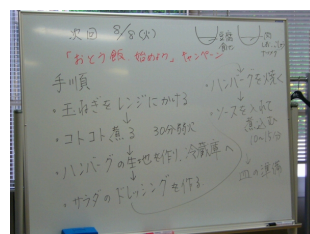 次回 8/8(火)
「おとう飯 始めよう」キャンペーン
手順
・玉ねぎをレンジにかける
↓
・コトコト煮る 30分弱火
↓
・ハンバーグの生地を作り、冷蔵庫へ
↓
・サラダのドレッシングを作る
・ハンバーグを焼く
↓
・ソースを入れて
煮込む
10~15分
↓
・皿の準備